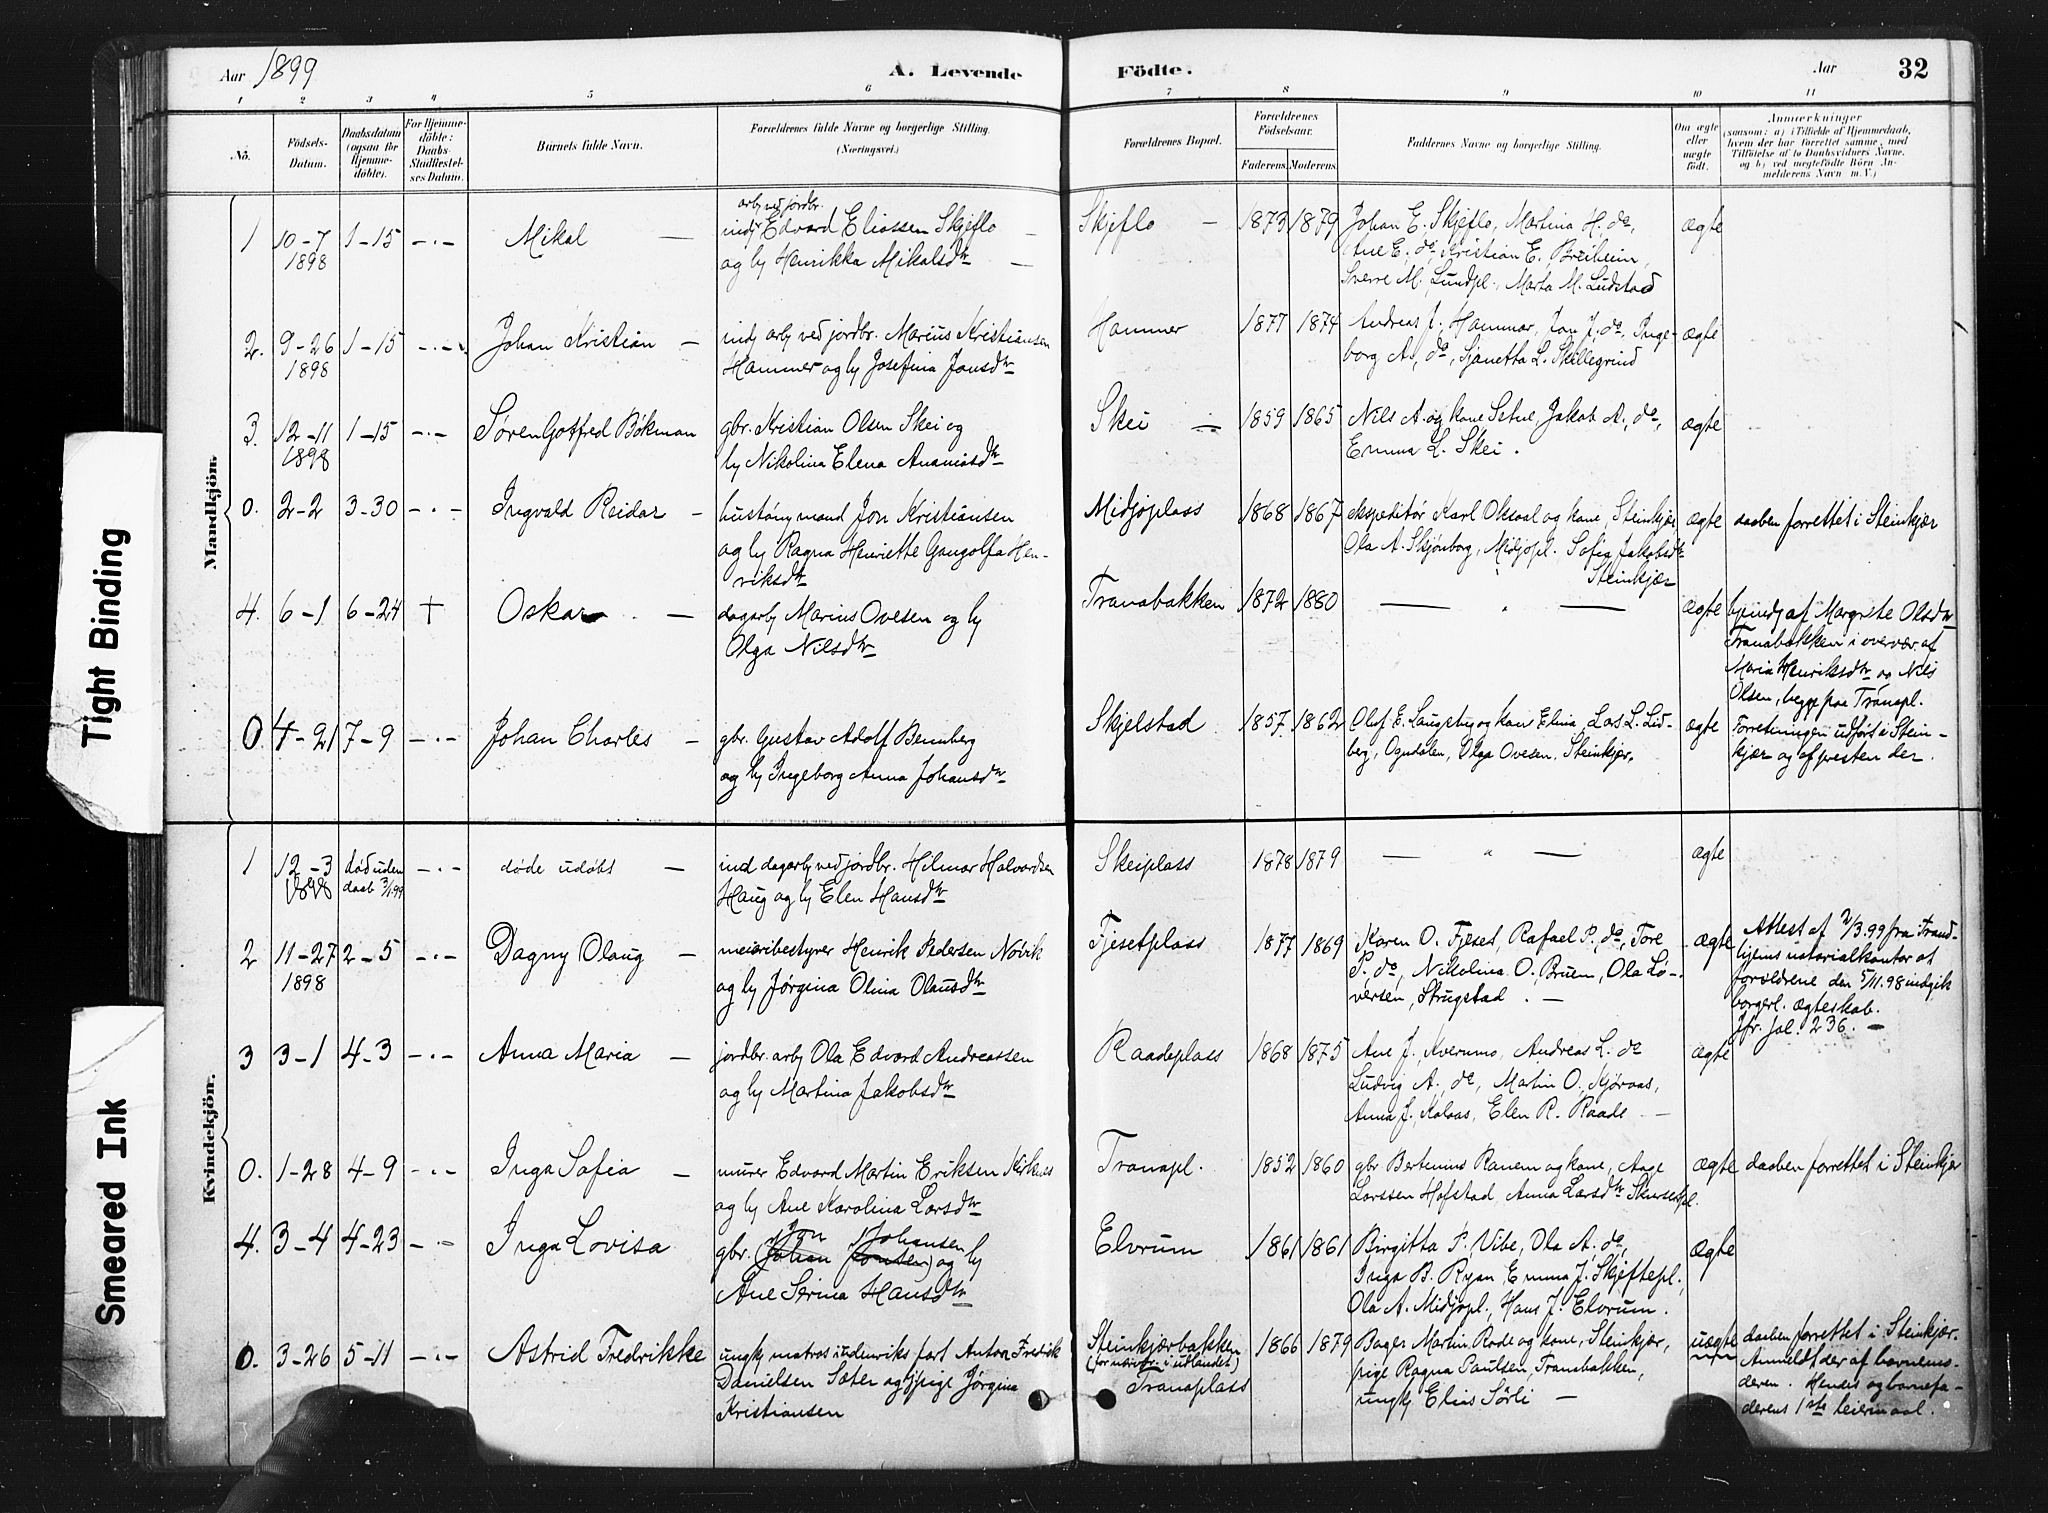 Aar 1899
A. Levende
Fødte.
Aar
32
1 2 3 4 5 6 7 8 9 10 11
No.
Fødsels-
Datum.
Daabsdatum
(ogsaa for
Hjemme-
døbte).
For Hjemme-
døbte:
Daabs-
Stadfæstel-
ses Datum.
Barnets fulde Navn.
Forældrenes fulde Navne og borgerlige Stilling.
(Næringsvei.)
Forældrenes Bopæl.
Forældrenes
Fødselsaar.
Faderens. Moderens.
Faddernes Navne og borgerlige Stilling.
Om ægte
eller
uægte
født.
Anmærkninger
(saasom: a) i Tilfælde af Hjemmedaab,
hvem der har forrettet samme, med
Tilføielse af to Daabsvidners Navne.
og b) ved uægtefødte Børn An-
melderens Navn m. V.)
Mandkjøn.
1 10-7 1-15 -·- Mikal —
1898
arb ved jordbr.
indj Edvard Eliassen Skjeflo —
og hv Henrikka Mikalsdtr —
Skjeflo — 1873 1879
Johan E. Skjeflo, Martina H. do,
Ane E. do, Kristian E. Breiheim,
Sverre M. Lundpl., Marta M. Ludstad
ægte
2. 9-26 1-15 -·- Johan Kristian —
1898
indj arb ved jordbr. Marius Kristiansen
Hammer og hv Josefina Jonsdtr
Hammer 1877 1874
Andreas J. Hammer, Jon J. do, Inge-
borg A. do, Sjanetta L. Skillegrind
ægte
3. 12-11 1-15 -·- Søren Gotfred Bøkman
1898
gbr. Kristian Olsen Skei og
hv Nikolina Elena Ananiasdtr
Skei — 1859 1865
Nils A. og kone Setne, Jakob A. do,
Emma L. Skei.
ægte
0. 2-2 3-30 -·- Ingvald Reidar —
hustømmand Jon Kristiansen
og hv Ragna Henriette Gangolfa Hen-
riksdtr
Midjoplass 1868 1867
ekspeditør Karl Oksaal og kone, Steinkjær
Ola A. Skjønborg, Midjopl. Sofia Jakobsdtr
Steinkjær
ægte daaben forrettet i Steinkjær
4. 6-1 6-24 † Oskar —
dagarb Marius Ovesen og hv
Olga Nilsdtr
Tranabakken 1872 1880
— " —
ægte hjemdj af Margrete Olsdtr
Tranabakken i overvær. af
Maria Henriksdtr og Nils
Olsen, begge paa Tranapl.
0. 4-21 7-9 -·- Johan Charles —
gbr. Gustav Adolf Bennberg
og hv Ingeborg Anna Johansdtr
Skjelstad 1857 1862
Oluf E. Langseby og kone Elina, Lars L. Lid-
berg, Ogndalen, Olga Ovesen, Steinkjær.
ægte Forretningen udført i Stein-
kjær og af presten der.
Kvindekjøn.
1 12-3 død uden -·- døde udøbt —
1898 daab 3/1 99
ind dagarb ved jordbr. Hilmar Halvardsen
Haug og hv Elen Hansdtr
Skeiplass 1878 1879
— " —
ægte
2 11-27 2-5 -·- Dagny Olaug —
1898
meieribestyrer Henrik Pedersen Novik
og hv Jørgina Olina Olausdtr
Fjesetplass 1877 1869
Karen O. Fjeset, Rafael P. do, Tore
P. do, Nikolina O. Bruem, Ola Lo-
versen, Strugstad. —
ægte Attest af 2/3.99 fra Trond-
hjems notarialkontor at
forældrene den 5/11.98 indgik
borgerl. ægteskab.
Jfr. jol. 236. —
3 3-1 4-3 -·- Anna Maria —
jordbr. arb Ola Edvard Andreassen
og hv Martina Jakobsdtr
Raadeplass 1868 1875
Ane J. Kvernmo, Andreas L. do
Ludvig A. do, Martin O. Kjøraas,
Anna J. Kolaas, Elen R. Raade —
ægte
0. 1-28 4-9 -·- Inga Sofia —
murer Edvard Martin Eriksen Kirknes
og hv Ane Karolina Larsdtr
Tranapl. 1852 1860
gbr Bertenius Ranem og kone, Aage
Larssen Hofstad, Anna Larsdtr
ægte daaben forrettet i Steinkjer
4. 3-4 4-23 - - Inga Lovisa
Jon Johansen
gbr. (Johan Jonsen) og hv
Ane Serina Hansdtr
Elvrum 1861 1861
Birgitta P. Vibe, Ola A. do,
Inga B. Ryan, Emma J. Skjeftepl.,
Ola A. Midjopl., Hans J. Elvrum.
ægte
0. 3-26 5-11 -·- Astrid Fredrikke
ungk matros i udenriks fart Anton Fredrik
Danielsen Sæter og pige Jørgina
Kristiansen
Steinkjærbakken
(for nærv. i utlandet)
Tranaplass
1866 1879
Bager Martin Rode og kone, Steinkjær,
pige Ragna Paulsen, Tranabakken,
ungk Elius Sørli —
uægte daaben forrettet i Steinkjær.
Anmeldt der af barnemo-
deren. Hendes og barnefa-
derens 1ste leiermaal.
Tight Binding
Smeared Ink